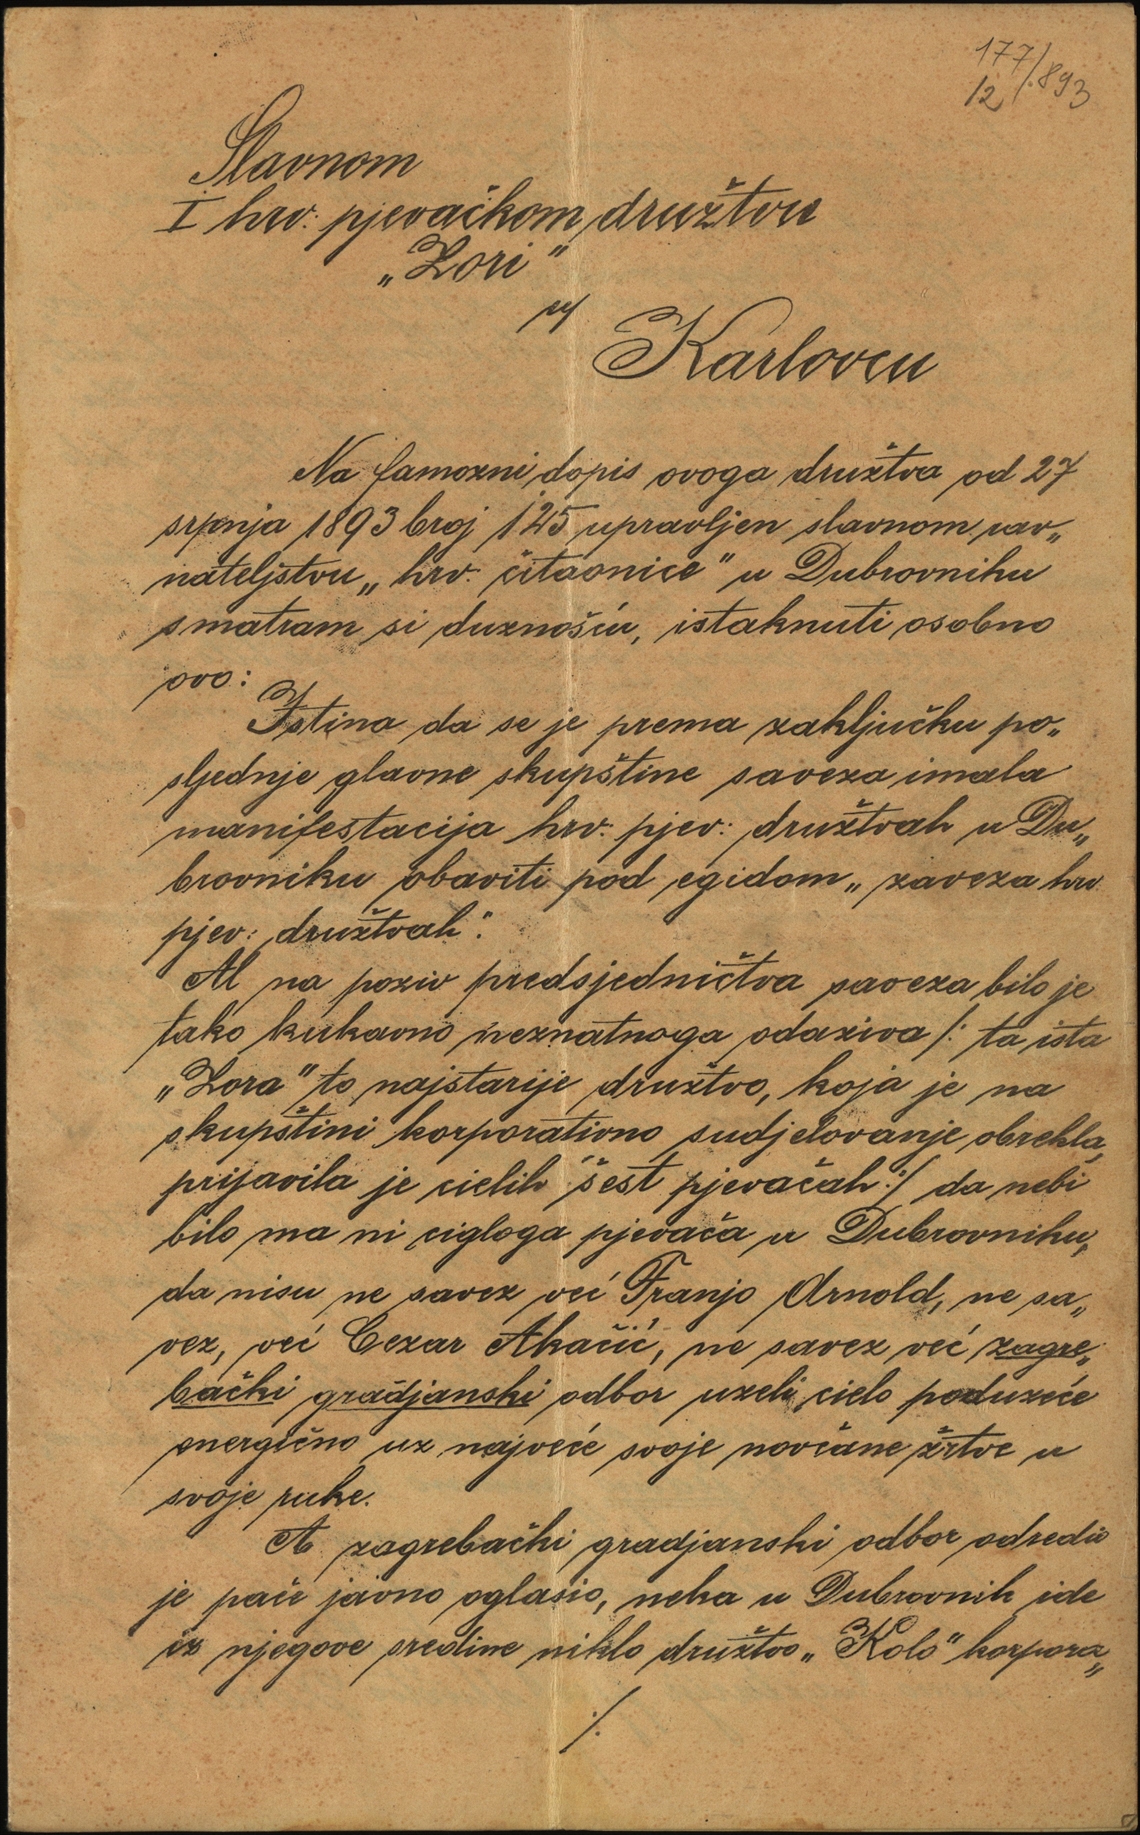 177/.893
12
Slavnom
I hrv: pjevačkom družtvu
„Zori"
u
Karlovcu
Na famozni dopis ovoga družtva od 27
srpnja 1893 broj 125 upravljen slavnom rav„
nateljstvu „hrv. čitaonice" u Dubrovniku
smatram si duznošću, istaknuti osobno
ovo:
Istina da se je prema zaključku po„
sljednje glavne skupštine saveza imala
manifestacija hrv. pjev: družtvah u Du„
brovniku obaviti pod egidom „zaveza hrv
pjev: družtvah".
Al na poziv predsjedničtva saveza bilo je
tako kukavno neznatnoga odaziva /: ta ista
„Zora" to najstarije družtvo, koja je na
skupštini korporativno sudjelovanje obrekla,
prijavila je cielih šest pjevačah :/ da nebi
bilo ma ni cigloga pjevača u Dubrovniku,
da nisu ne savez već Franjo Arnold, ne sa„
vez, već Cezar Akačić, ne savez već zagre„
bački gradjanski odbor uzeli cielo poduzeće
energično uz najveće svoje novčane žrtve u
svoje ruke.
A zagrebački gradjanski odbor odredio
je pače javno oglasio, neka u Dubrovnik ide
iz njegove sredine niklo družtvo „Kolo" korpora„
./.